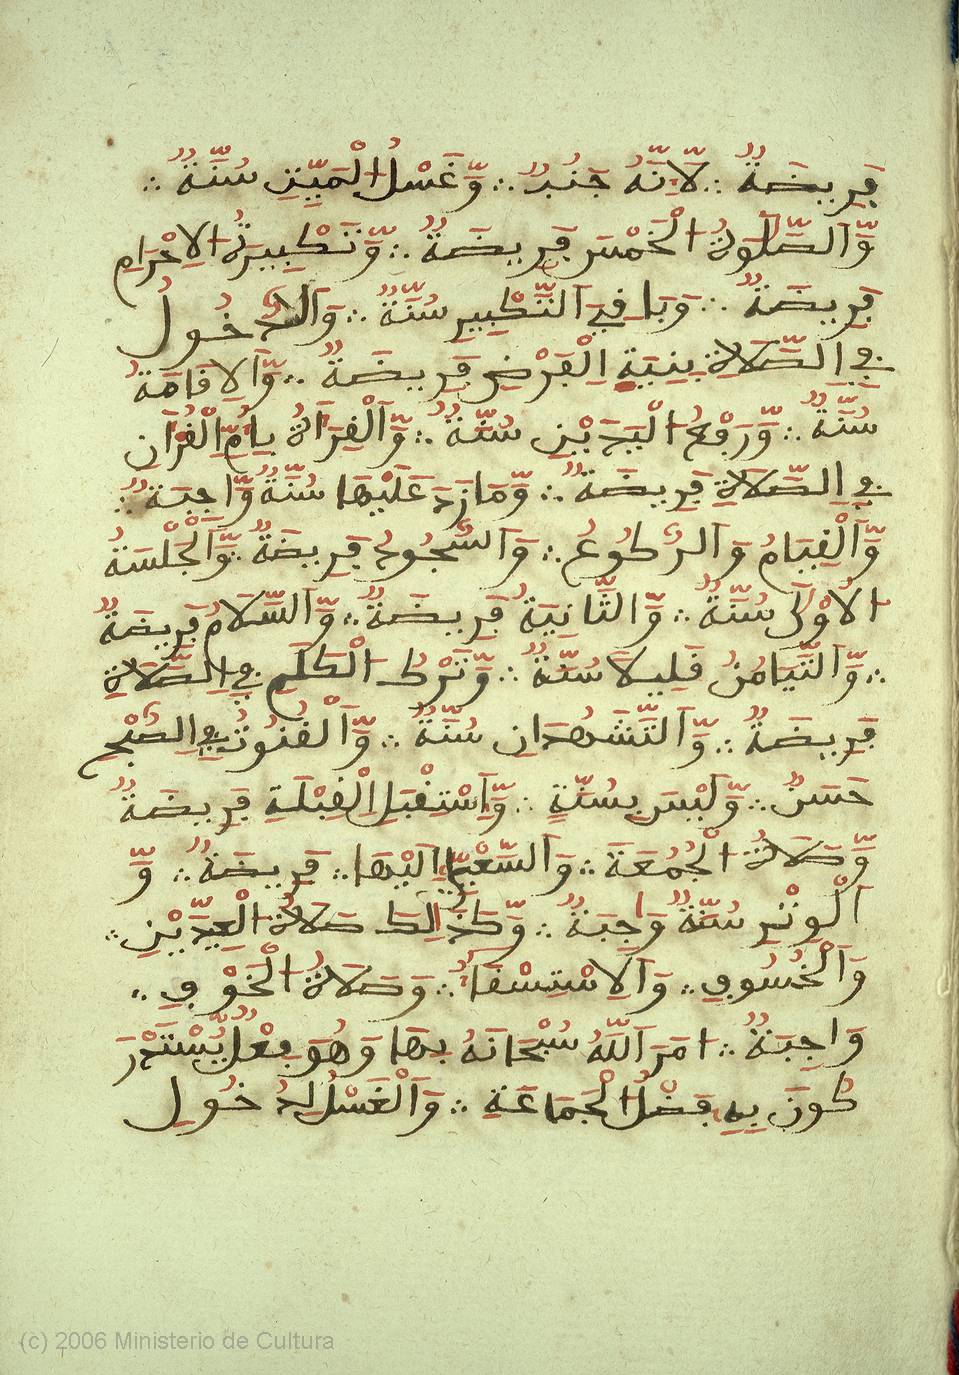 فَرِيضَةٌ ؞ لَّانَّهُ جَنُبٌ ؞ وَّغَسْلُ الْمَيِّتِ سُنَّةٌ ؞
وَّالصَّلَوٰةُ الْخَمْسَ فَرِيضَةٌ ؞ وَّتَكْبِيرَةُ الِاحْرَامِ
فَرِيضَةٌ ؞ وَبَافِي التَّكْبِيرِ سُنَّةٌ ؞ وَالدُّخُولُ
فِي الصَّلَاةِ بِنِيَّةِ الْفَرْضِ فَرِيضَةٌ ؞ وَّالِافَامَةُ
سُنَّةٌ ؞ وَّرَفْعُ الْيَدَيْنِ سُنَّةٌ ؞ وَّالْفِرَاةُ بِامِّ الْفُرْآنِ
فِي الصَّلَاةِ فَرِيضَةٌ ؞ وَّمَا زَدَ عَلَيْهَا سُنَّةٌ وَّاجِبَةٌ ؞
وَّالْفِيَامُ وَالرُّكُوعُ ؞ وَالسُّجُودُ فَرِيضَةٌ ؞ وَّالْجَلْسَةُ
الْاُوْلَى سُنَّةٌ ؞ وَّالثَّانِيَةُ فَرِيضَةٌ ؞ وَّالسَّلَامُ فَرِيضَةٌ
؞ وَّالتَّيَامُنُ فَلِيلًا سُنَّةٌ ؞ وَّتَرْكُ الْكَلَمِ فِي الصَّلَاةِ
فَرِيضَةٌ ؞ وَّالتَّشَهُدَانِ سُنَّةٌ ؞ وَّالْفُنُوتُ فِي الصُّبْحِ
حَسَنٌ ؞ وَّلَيْسَ بِسُنَّةٍ ؞ وَّاسْتِفْبَلِ الْفِبْلَةِ فَرِيضَةٌ
وَّصَلَاةُ الْجُمُعَةَ ؞ وَالسَّعْيُ الَيْهَا ؞ فَرِيضَةٌ ؞ وَّ
الْوِتْرِ سُنَّةٌ وَاجِبَةٌ ؞ وَّكَذٰلِكَ صَلَاةُ الْعِيدَيْنِ ؞
وَالْخُسُوفِ ؞ وَالِاسْتِسْفَاُ ؞ وَصَلَاةُ الْخَوْفِ ؞
وَاجِبَةٌ ؞ امَرَ اللَّهُ سُبْحَانَهُ بِهَا وَهُوَ فِعْلٌ يَّسْتَدْرَ
كُونَ بِهِ فَضْلَ الْجَمَاعَةِ ؞ وَالْغَسْلُ لِدُخُولِ
(c) 2006 Ministerio de Cultura